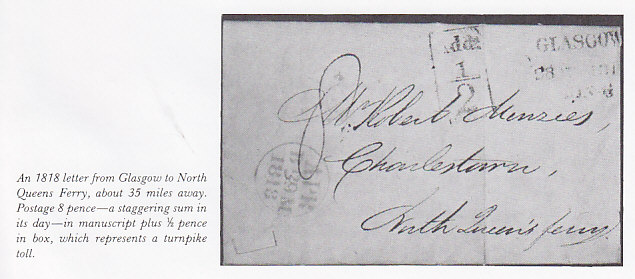 An 1818 letter from Glasgow to North
Queens Ferry, about 35 miles away.
Postage 8 pence—a staggering sum in
its day—in manuscript plus ½ pence
in box, which represents a turnpike
toll.
Addl
1
2
GLASGOW
8
Mr Robert Menzies,
Charlestown,
North Queen's ferry.
APR
1818